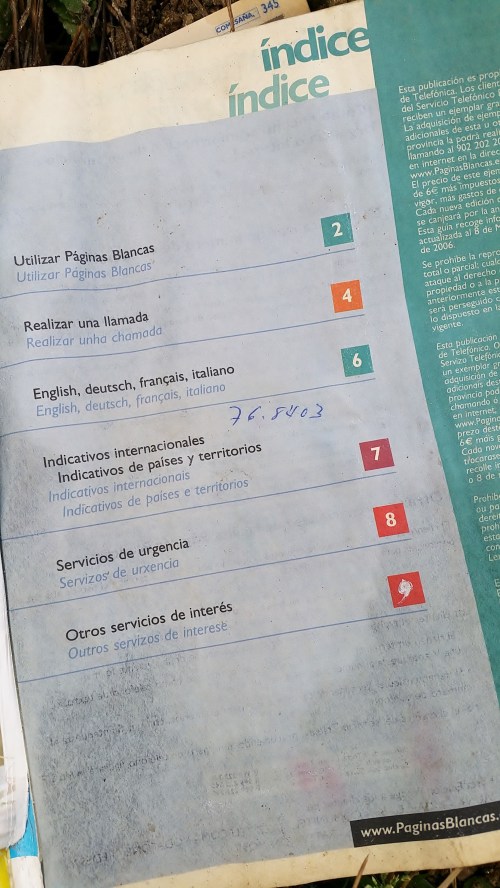 COMESAÑA, 345
índice
índice
Utilizar Páginas Blancas
Utilizar Páginas Blancas
2
Realizar una llamada
Realizar unha chamada
4
English, deutsch, français, italiano
English, deutsch, français, italiano
6
76.8403
Indicativos internacionales
Indicativos de países y territorios
Indicativos internacionais
Indicativos de países e territorios
7
Servicios de urgencia
Servizos de urxencia
8
Otros servicios de interés
Outros servizos de interese
9
Esta publicación es prop
de Telefónica. Los client
del Servicio Telefónico
reciben un ejemplar gra
La adquisición de ejemp
adicionales de esta u o
provincia la podrá real
llamando al 902 202 20
en internet en la direc
www.PaginasBlancas.e
El precio de este ejem
de 6€ más impuestos
vigor, más gastos de
Cada nueva edición
se canjeará por la an
Esta guía recoge info
actualizada al 8 de M
de 2006.
Se prohíbe la repro
total o parcial; cualq
ataque al derecho
propiedad o a la p
anteriormente est
será perseguido
lo dispuesto en la
vigente.
Esta publicación
de Telefónica. O
Servizo Telefón
un exemplar gr
adquisición de
adicionais des
provincia pod
chamando o
en internet
www.Pagin
prezo deste
6€ máis
Cada nov
trocarase
recolle i
o 8 de
Prohíb
ou pa
derei
proh
esta
con
Le
www.PaginasBlancas.